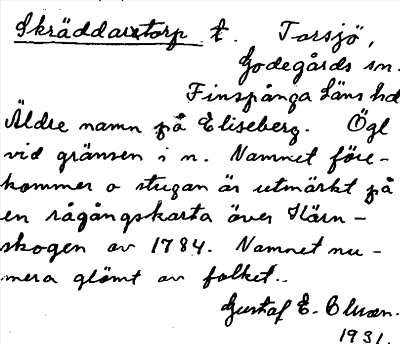 Skräddaretorp t. Torsjö,
Godegårds sn.
Finspånga Läns hd
Äldre namn på Eliseberg. Ögl
vid gränsen i n. Namnet före-
kommer o stugan är utmärkt på
en rågångskarta över Kärn-
skogen av 1784. Namnet nu-
mera glömt av folket.
Gustaf E.
1931.